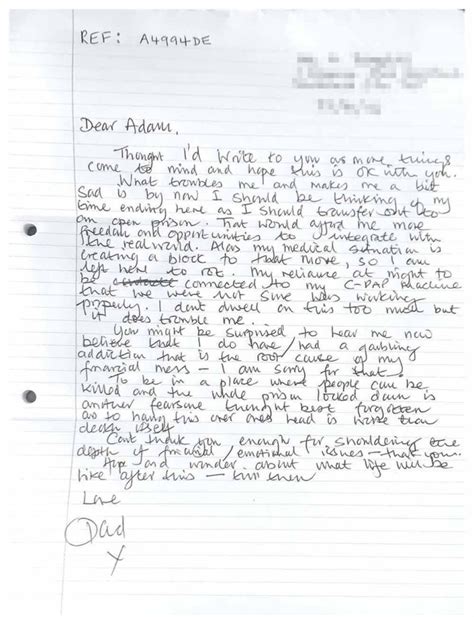 REF: A4994DE
Dear Adam,
Thought I'd write to you as more things
come to mind and hope this is OK with you.
What troubles me and makes me a bit
sad is by now I should be thinking of my
time ending here as I should transfer out to
an open prison. That would afford me more
freedom and opportunities to integrate with
the real world. Alas my medical situation is
creating a block to that move, so I am
left here to rot. My reliance at night to
be connected to my C-PAP machine
that we were not sure was working
properly. I dont dwell on this too much but
it does trouble me.
You might be surprised to hear me now
believe that I do have/had a gambling
addiction that is the root cause of my
financial mess - I am sorry for that.
To be in a place where people can be
killed and the whole prison locked down is
another fearsome thought best forgotten
as to hang this over ones head is worse than
death itself
Cant thank you enough for shouldering the
depth of financial/emotional issues - thank you.
Hope and wonder about what life will be
like after this - till then
Love
Dad
X